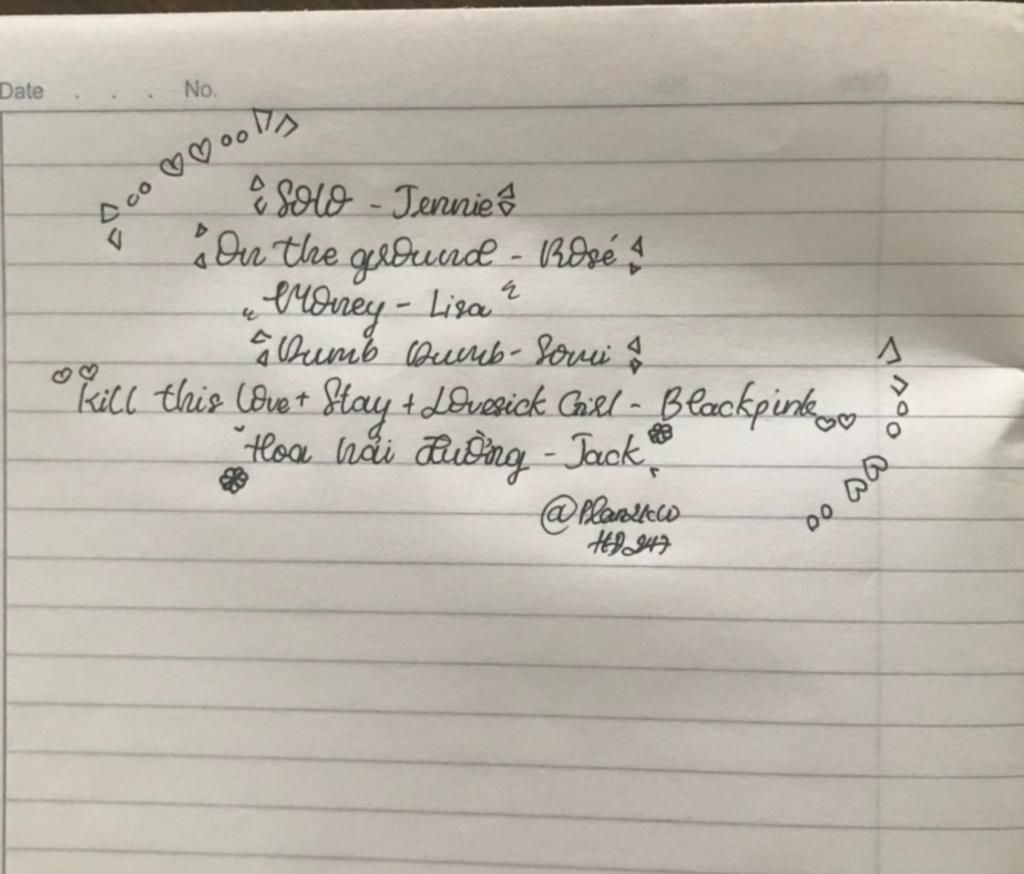 Date . . . No.
Solo - Jennie
On the ground - Rosé
Money - Lisa
Dumb Dumb - Somi
Kill this love + Stay + Lovesick Girl - Blackpink
Hoa hải đường - Jack